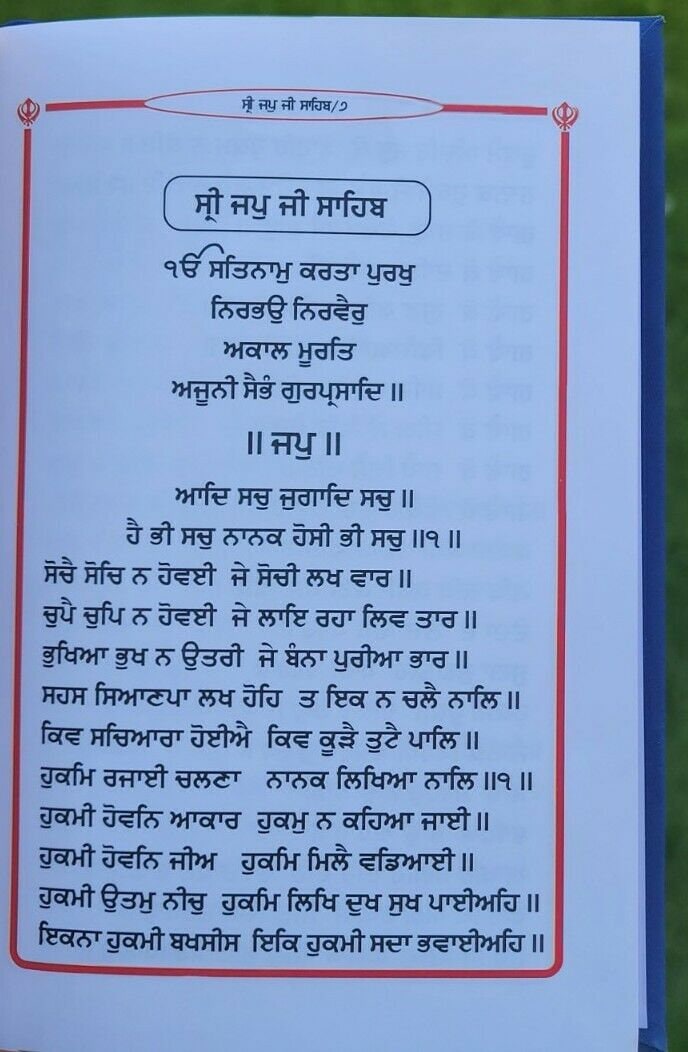 ਸ੍ਰੀ ਜਪੁ ਜੀ ਸਾਹਿਬ/੭
ਸ੍ਰੀ ਜਪੁ ਜੀ ਸਾਹਿਬ
ੴ ਸਤਿਨਾਮੁ ਕਰਤਾ ਪੁਰਖੁ
ਨਿਰਭਉ ਨਿਰਵੈਰੁ
ਅਕਾਲ ਮੂਰਤਿ
ਅਜੂਨੀ ਸੈਭੰ ਗੁਰਪ੍ਰਸਾਦਿ ॥
॥ ਜਪੁ ॥
ਆਦਿ ਸਚੁ ਜੁਗਾਦਿ ਸਚੁ ॥
ਹੈ ਭੀ ਸਚੁ ਨਾਨਕ ਹੋਸੀ ਭੀ ਸਚੁ ॥੧॥
ਸੋਚੈ ਸੋਚਿ ਨ ਹੋਵਈ ਜੇ ਸੋਚੀ ਲਖ ਵਾਰ ॥
ਚੁਪੈ ਚੁਪਿ ਨ ਹੋਵਈ ਜੇ ਲਾਇ ਰਹਾ ਲਿਵ ਤਾਰ ॥
ਭੁਖਿਆ ਭੁਖ ਨ ਉਤਰੀ ਜੇ ਬੰਨਾ ਪੁਰੀਆ ਭਾਰ ॥
ਸਹਸ ਸਿਆਣਪਾ ਲਖ ਹੋਹਿ ਤ ਇਕ ਨ ਚਲੈ ਨਾਲਿ ॥
ਕਿਵ ਸਚਿਆਰਾ ਹੋਈਐ ਕਿਵ ਕੂੜੈ ਤੁਟੈ ਪਾਲਿ ॥
ਹੁਕਮਿ ਰਜਾਈ ਚਲਣਾ ਨਾਨਕ ਲਿਖਿਆ ਨਾਲਿ ॥੧॥
ਹੁਕਮੀ ਹੋਵਨਿ ਆਕਾਰ ਹੁਕਮੁ ਨ ਕਹਿਆ ਜਾਈ ॥
ਹੁਕਮੀ ਹੋਵਨਿ ਜੀਅ ਹੁਕਮਿ ਮਿਲੈ ਵਡਿਆਈ ॥
ਹੁਕਮੀ ਉਤਮੁ ਨੀਚੁ ਹੁਕਮਿ ਲਿਖਿ ਦੁਖ ਸੁਖ ਪਾਈਅਹਿ ॥
ਇਕਨਾ ਹੁਕਮੀ ਬਖਸੀਸ ਇਕਿ ਹੁਕਮੀ ਸਦਾ ਭਵਾਈਅਹਿ ॥